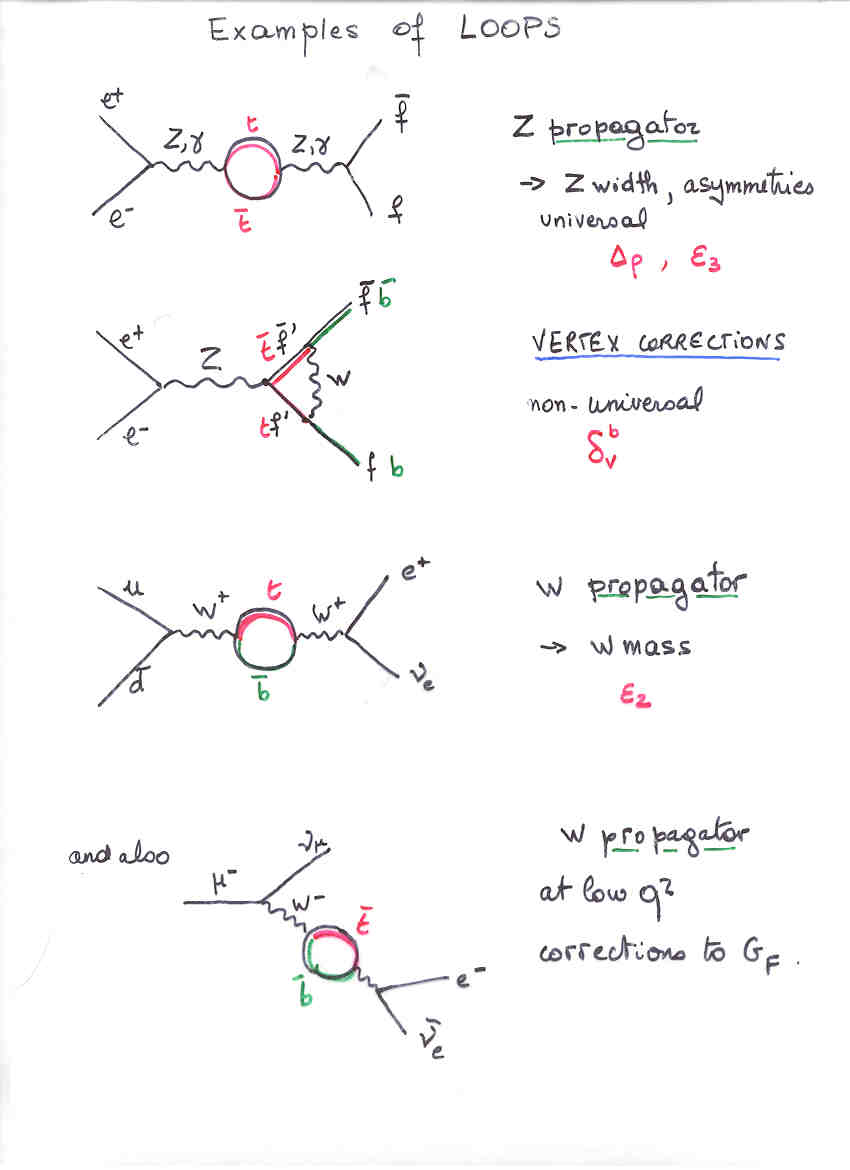 Examples of LOOPS
e+
e-
Z,γ
t
t̄
Z,γ
f̄
f
Z propagator
→ Z width, asymmetries
universal
Δρ , ε3
e+
e-
Z
t̄ f̄'
t f'
W
f̄ b̄
f b
VERTEX CORRECTIONS
non-universal
δ_V^b
u
d̄
W+
t
b̄
W+
e+
ν_e
W propagator
→ W mass
ε2
and also
μ-
ν_μ
W-
t̄
b̄
e-
ν̄_e
W propagator
at low q²
corrections to G_F .